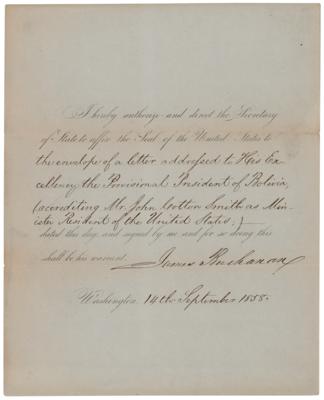 I hereby authorize and direct the Secretary
of State to affix the Seal of the United States to
the envelope of a letter addressed to His Ex-
cellency the Provisional President of Bolivia,
(accrediting Mr. John Cotton Smith as Min-
ister Resident of the United States;)
dated this day, and signed by me and for so doing this
shall be his warrant.
James Buchanan
Washington, 14th September 1858.